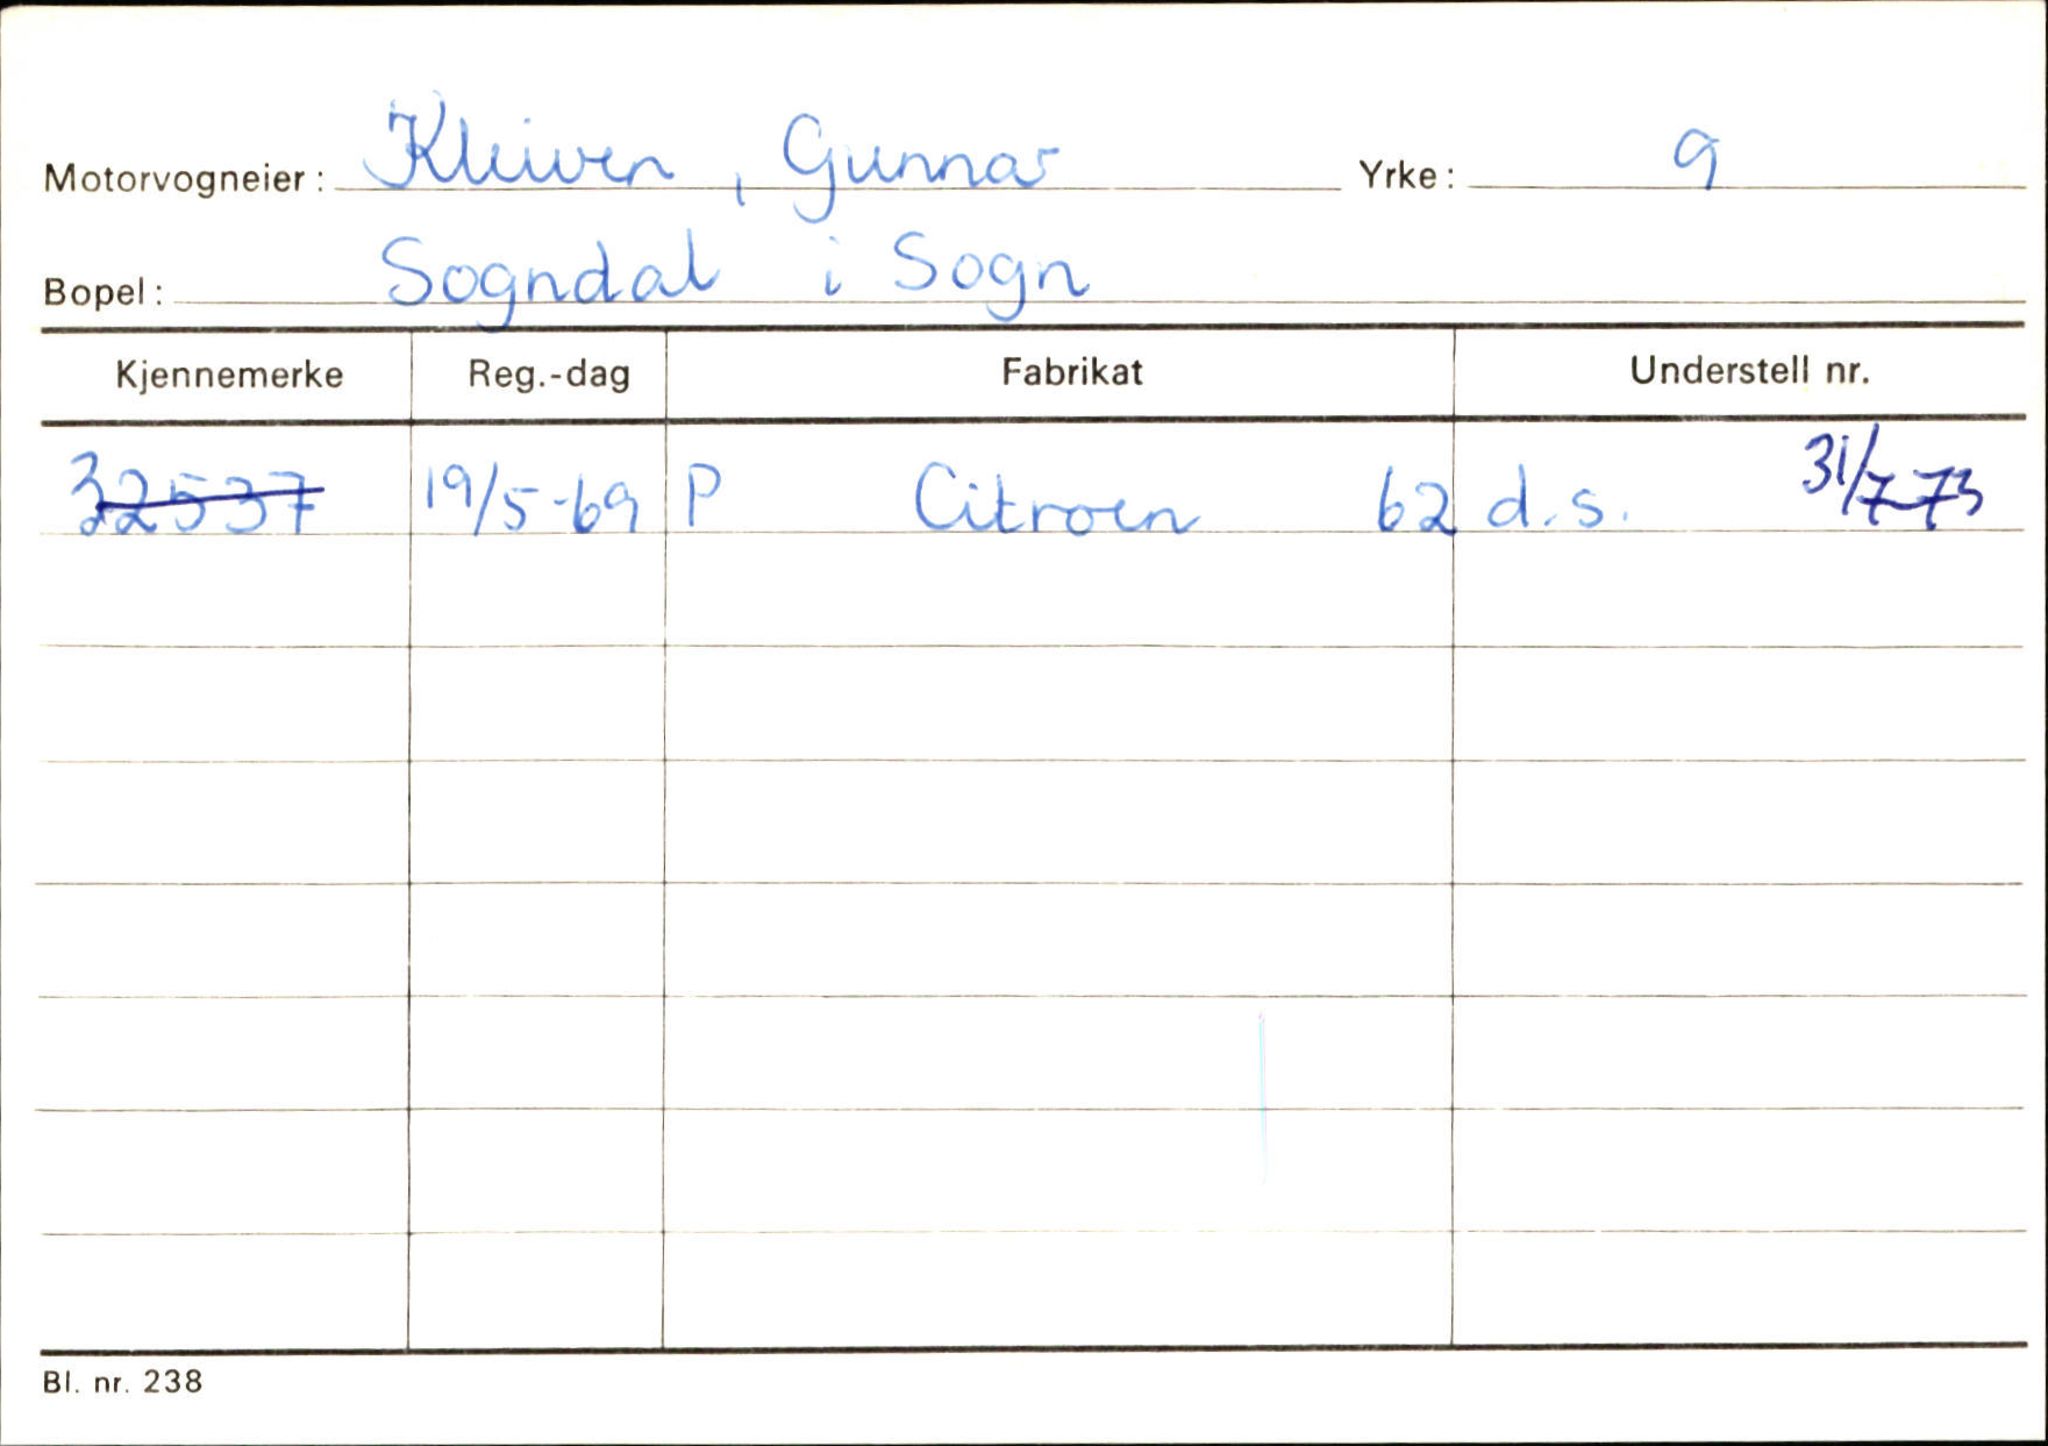 Motorvogneier: Kleiven, Gunnar Yrke: 9
Bopel: Sogndal i Sogn
Kjennemerke Reg.-dag Fabrikat Understell nr.
32537 19/5-69 P Citroen 62 d.s. 31/7-73
Bl. nr. 238